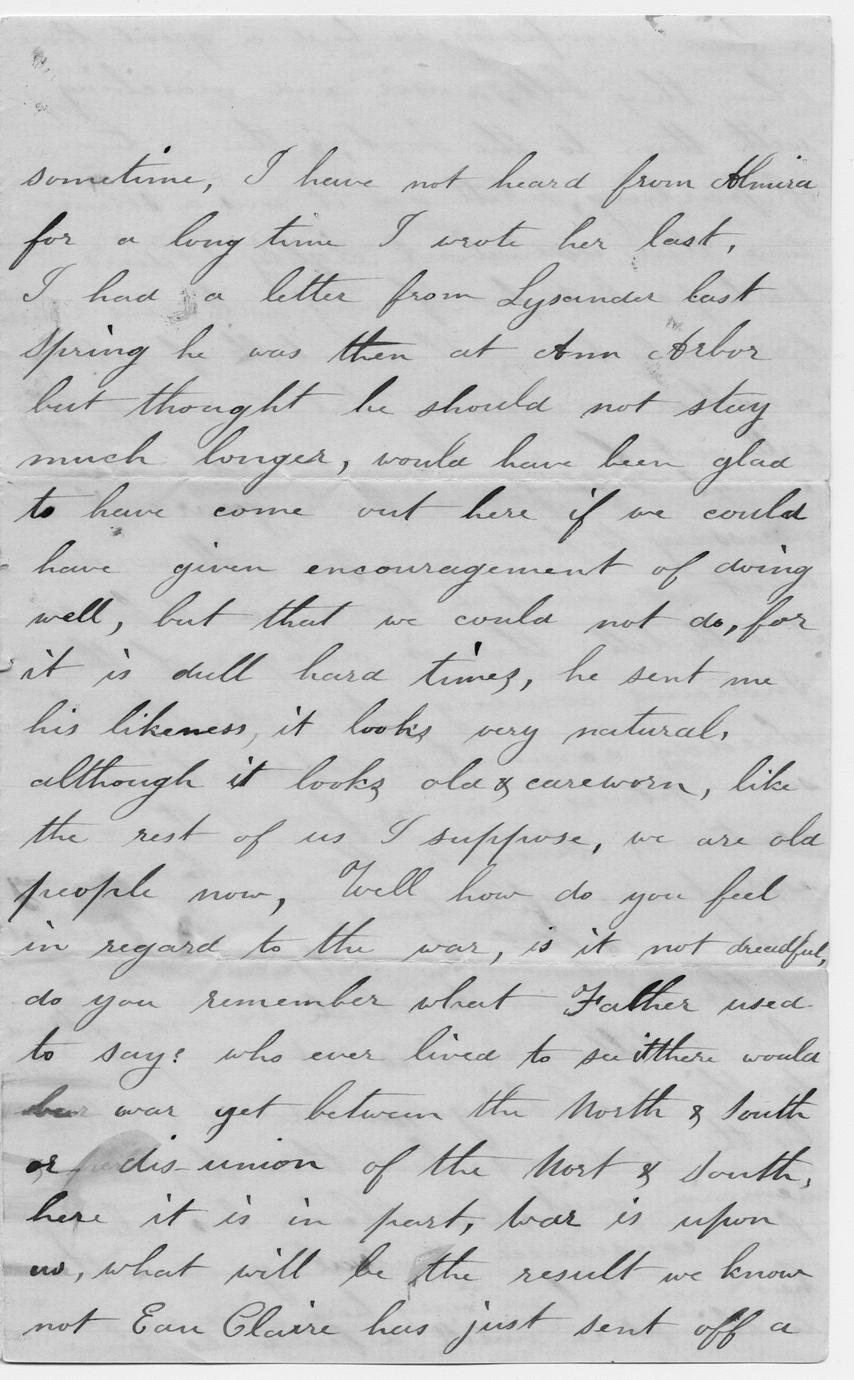 sometime, I have not heard from Almira
for a long time I wrote her last,
I had a letter from Lysander last
spring he was then at Ann Arbor
but thought he should not stay
much longer, would have been glad
to have come out here if we could
have given encouragement of doing
well, but that we could not do, for
it is dull hard times, he sent me
his likeness, it looks very natural,
although it looks old & careworn, like
the rest of us I suppose, we are old
people now, Well how do you feel
in regard to the war, is it not dreadful,
do you remember what Father used
to say? who ever lived to see it there would
be war yet between the North & South
or dis-union of the Nort & South,
here it is in part, War is upon
us, what will be the result we know
not Eau Claire has just sent off a